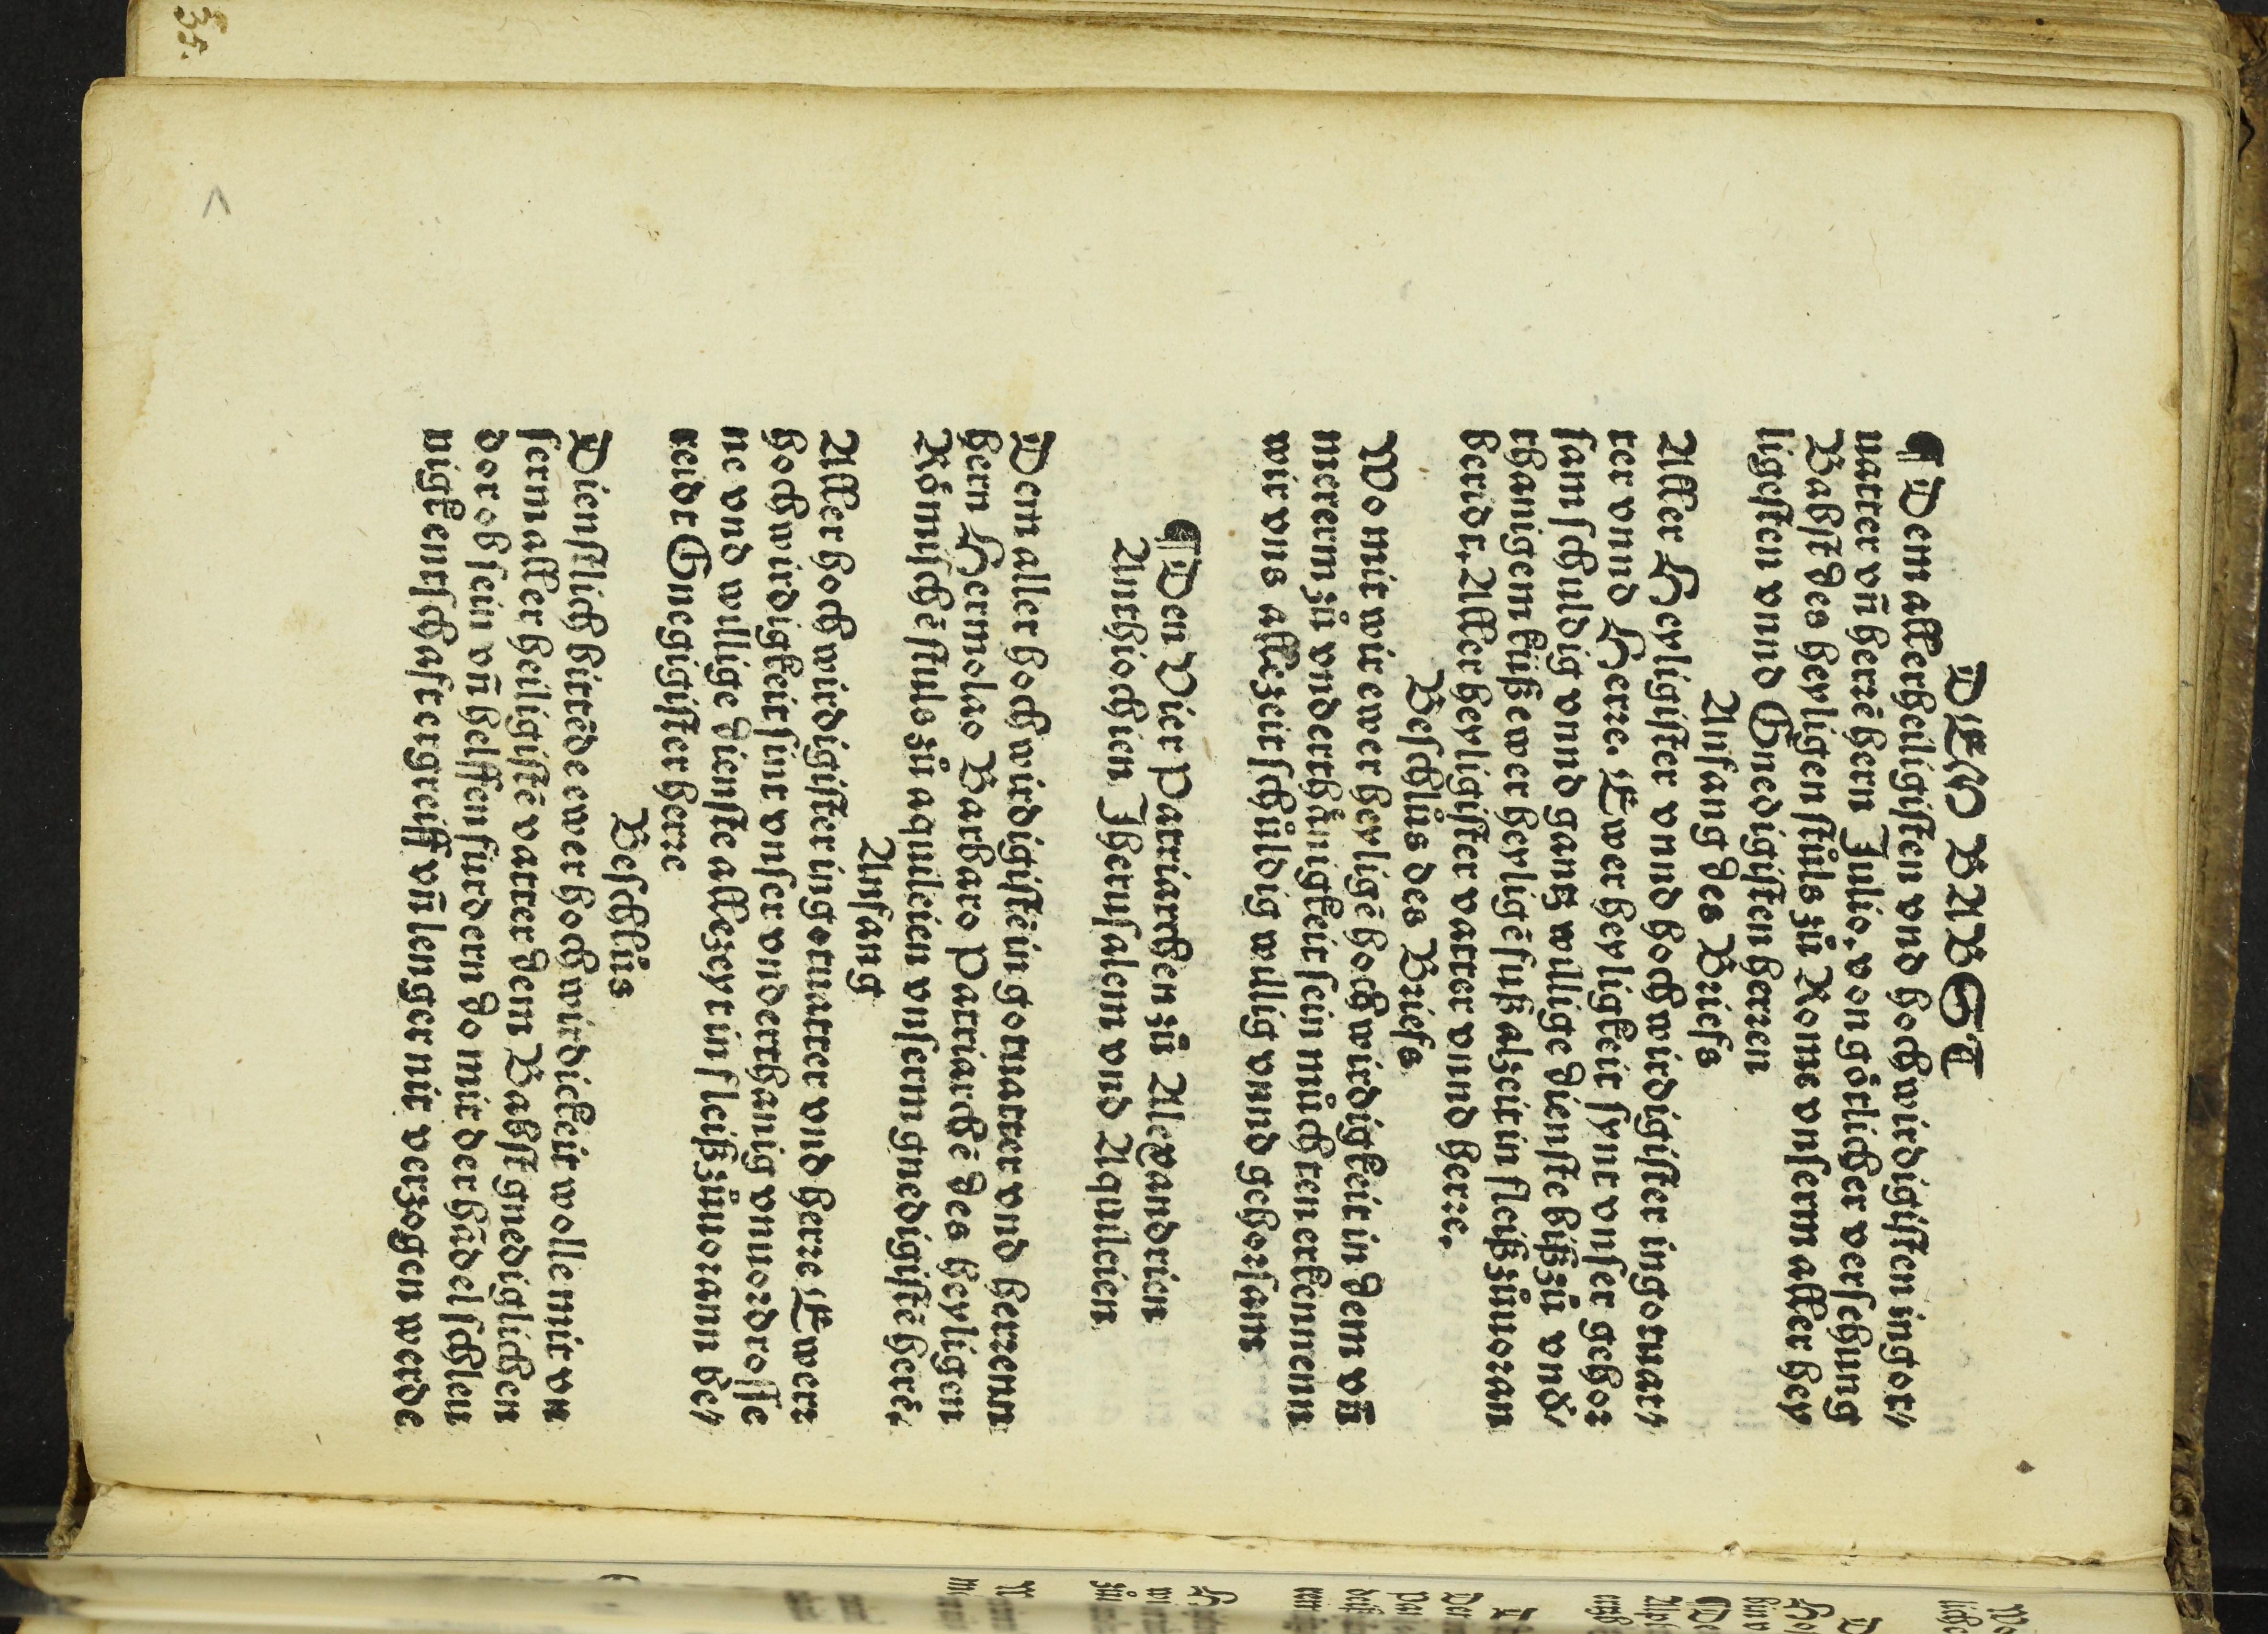 DES BABST
¶Dem allerheiligisten vnd hochwirdigisten in gor⸗
uatter vn̄ herzē hern Julio. von gŏtlicher versehung
Babst des heyligen stůls zů Rome vnserm aller hey
ligesten vnnd Gnedigisten herzen
Anfang des Briefs
Aller Heyligister vnnd hochwirdigister in gotuat⸗
ter vnnd Herze. Ewer heyligkeit synt vnser gehor
sam schuldig vnnd gantz willige dienste bißzů vnd
thanigem küß ewer heyligē fuß alzeit in fleiß zůuoran
berridt. Aller heyligister vatter vnnd herze.
Beschlůs des Briefs
Wo mit wir ewer heyligē hochwirdigkeit in dem vn̄
mererm zů vnderthånigkeit sein můchten erkennenn
wir vns allezeit schůldig willig vnnd gehorsam
¶Den Vier Patriarchen zů Alexandrien
Anthiochien Jherusalem vnd Aquileien
Dem aller hochwirdigistē in gotuatter vnd herzenn
hern Hermolao Barbaro Patriarchē des heyligen
Rŏmischē stuls zů aquileien vnserm gnedigistē herē.
Anfang
Aller hochwirdigister in gotuatter vnd herze Ewer
hochwirdigkeit sint vnser vnderthanig vnuordrosse
ne vnd willige dienste allezeyt in fleiß zůuorann be⸗
reidt Gnegigister herze
Beschlüs
Dienstlich bittēde ewer hochwirdickeit wolle mit vn
serm aller heiligistē vatter dem Babst gnediglichen
dor ob sein vn̄ helffen furdern do mit der hādel schleu
nigk entschaft ergreiff vn̄ lenger nit verzogen werde
35.